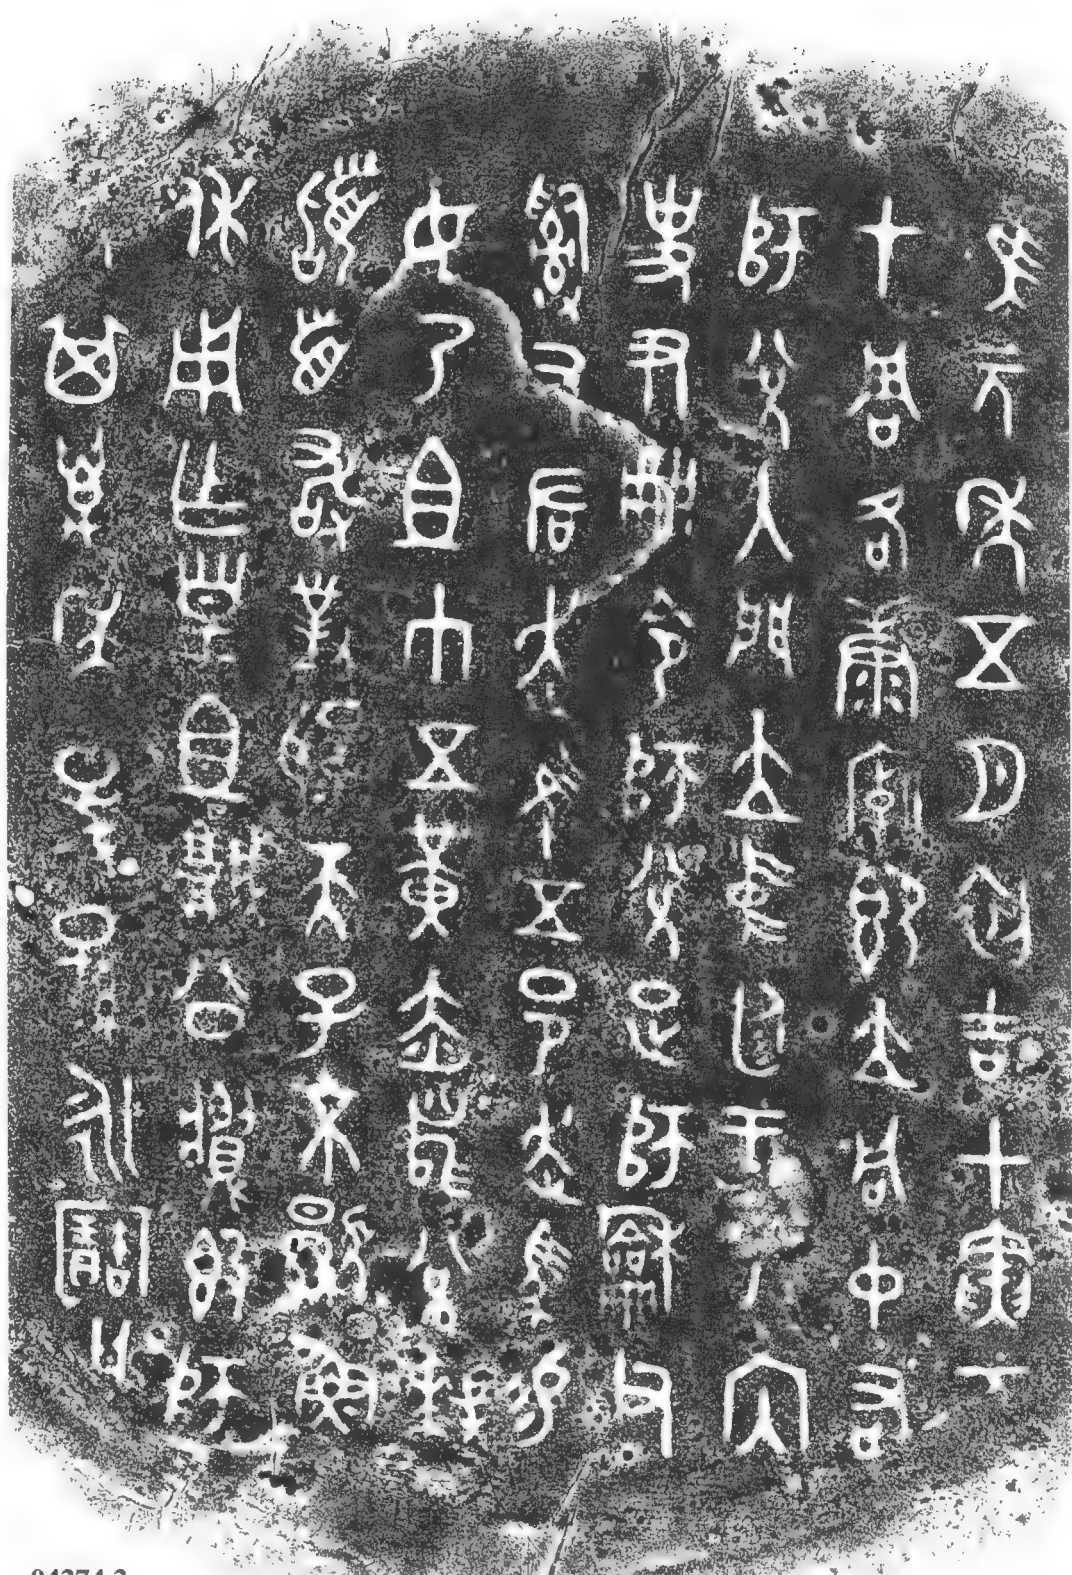 隹元年五月初吉甲寅王
才周各康廟即立同中右
師兌入門立中廷王乎內
史尹冊令師兌疋師龢父
𤔲左右走馬五邑走馬易
女乃且巾五黃赤舄兌拜
𩒨首敢對揚天子不顯魯
休用乍皇且城公䵼𣪘師
兌其萬年子子孫孫永寶用